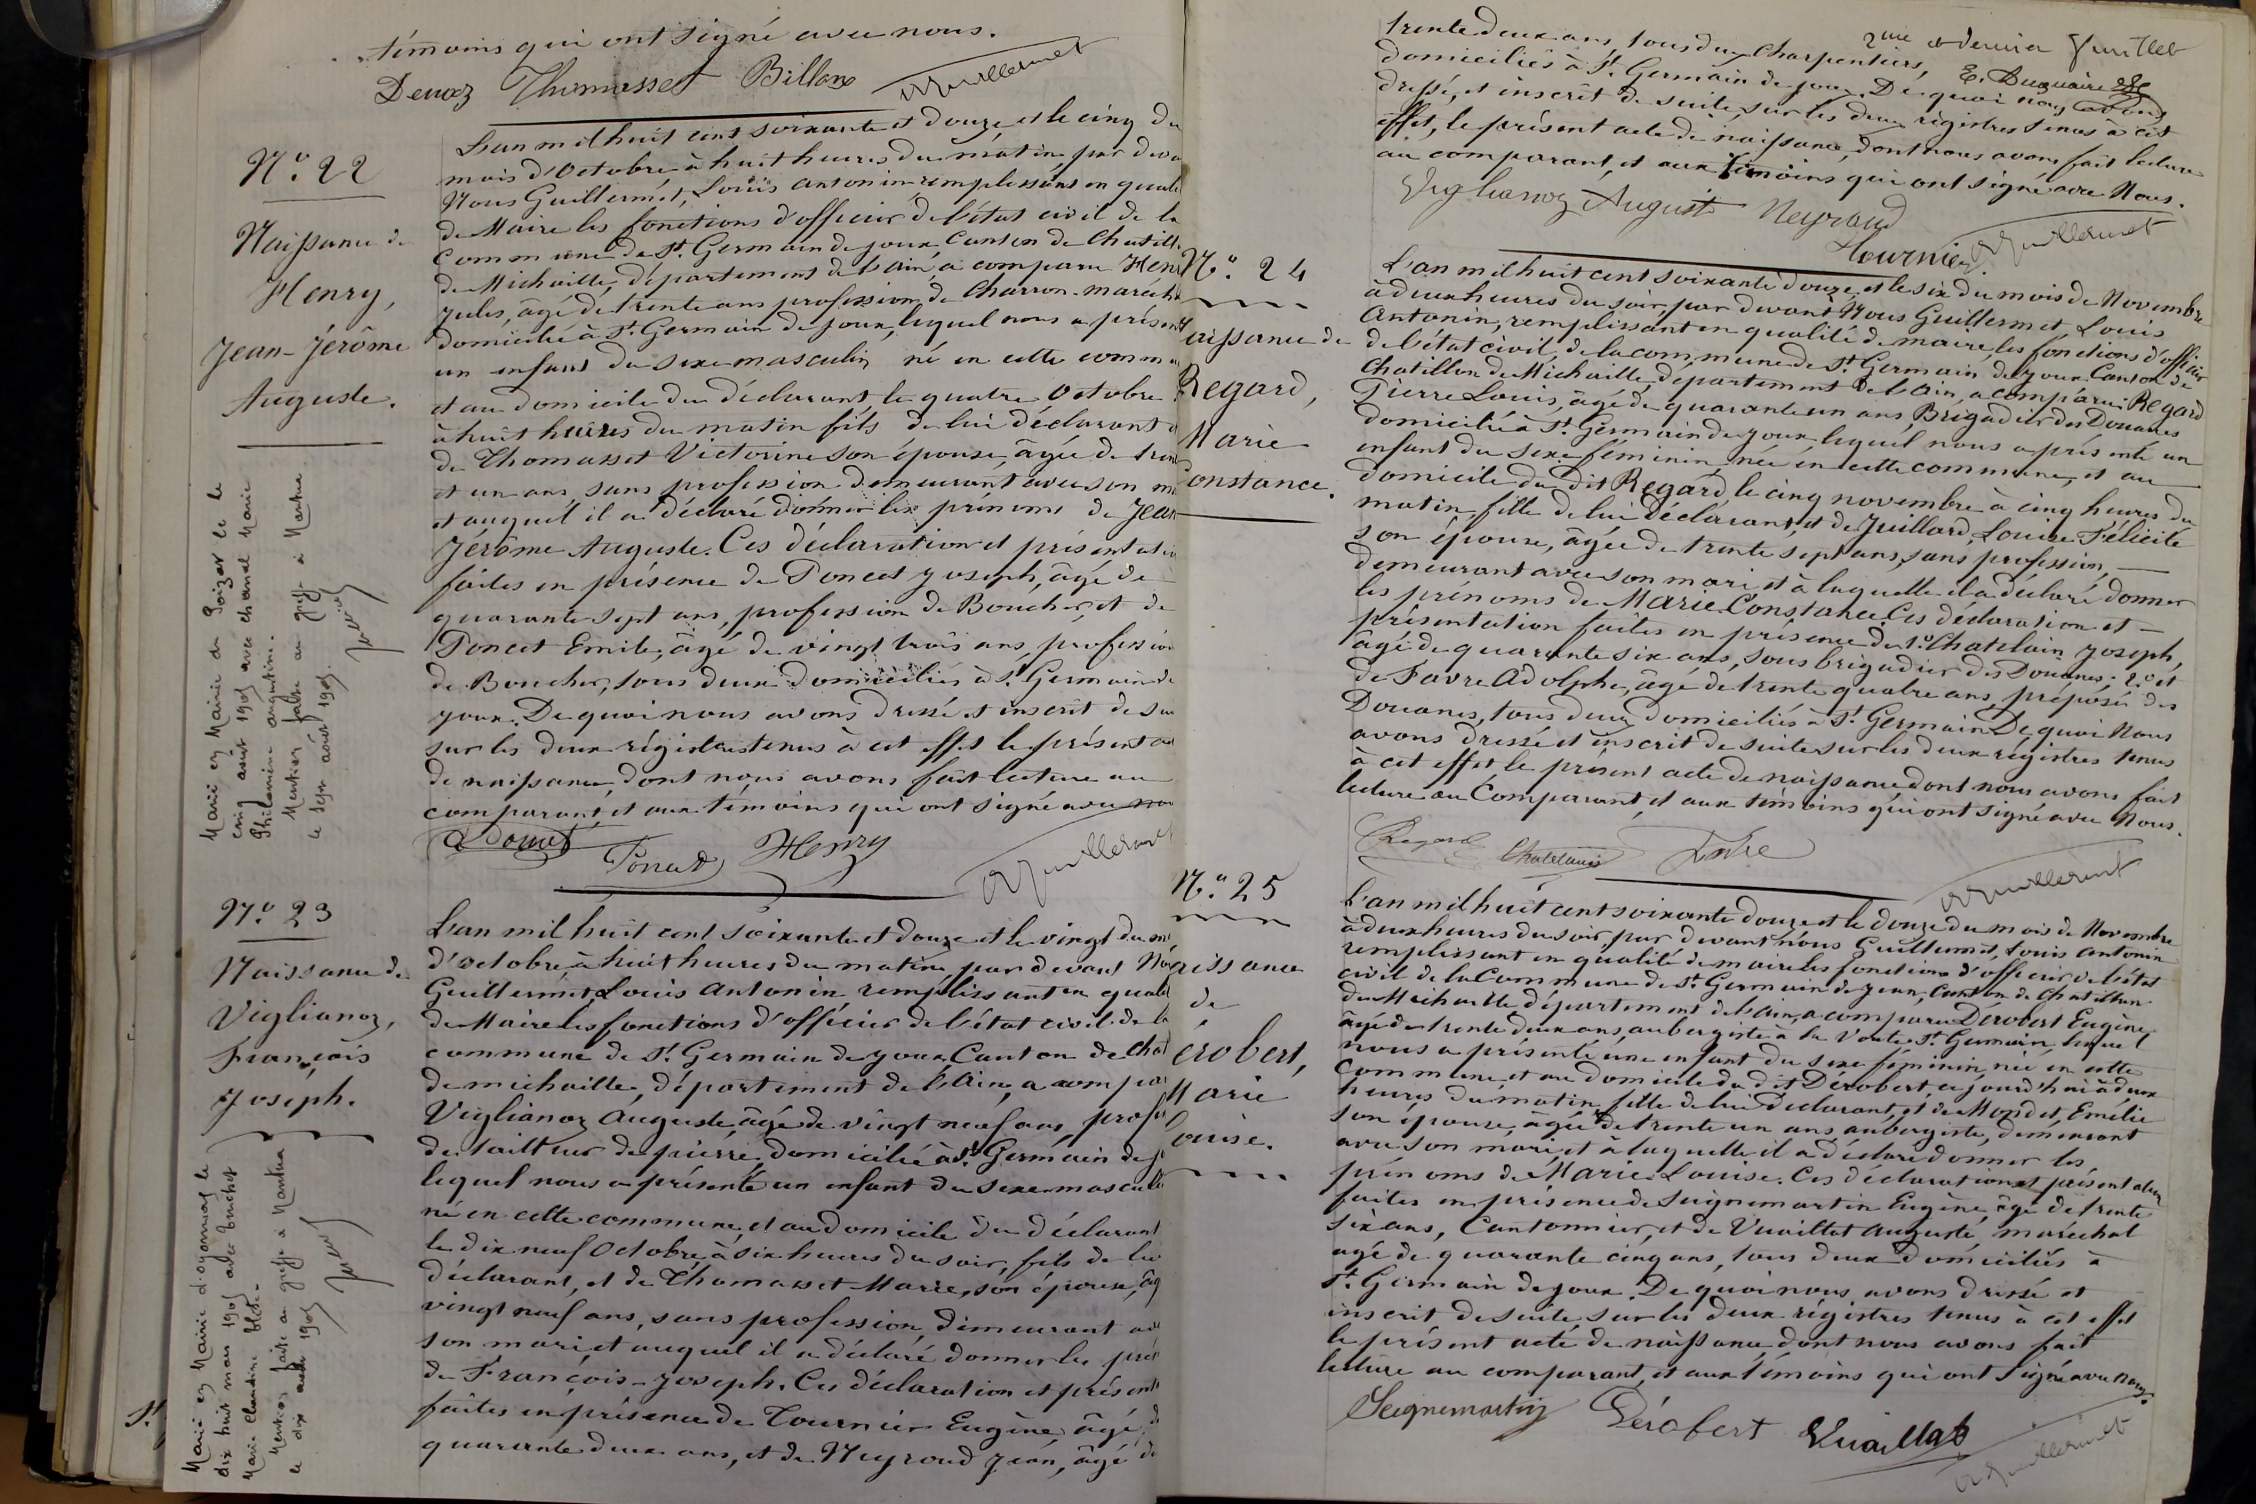 témoins qui ont signé avec nous.
Thomasset Billon
AGuillermet
N.° 22
Naissance de
Henry,
Jean-Jérôme
Auguste.
L'an mil huit cent soixante et douze et le cinq du
mois d'Octobre à huit heures du matin par deva
Nous Guillermet, Louis antonin remplissant en quali
de Maire les fonctions d'officier de l'état civil de la
commune de St. Germain de joux Canton de Chatill
de Michaille, département de l'ain, a comparu Hen
jules, âgé de trente ans profession de Charron-maréch
domicilié à St. Germain de joux, lequel nous a présen
un enfant du sexe masculin né en cette comm
et au domicile du déclarant le quatre Octobre
à huit heures du matin fils de lui déclarant e
de Thomasset Victorine son épouse, âgée de tren
et un ans, sans profession demeurant avec son m
et auquel il a déclaré donner les prénoms de Jean
Jérôme Auguste. Ces déclaration et présentatio
faites en présence de Poncet joseph, âgé de
quarante sept ans, profession de Boucher, et de
Poncet Emile, âgé de vingt trois ans, profession
de Boucher, tous deux domiciliés à St. Germain de
joux. De quoi nous avons dressé et inscrit de su
sur les deux régistres tenus à cet effet le présent a
de naissance, dont nous avons fait lecture au
comparant, et aux témoins qui ont signé avec no
Poncet Henry
AGuillermet
Marié en Mairie du Poizat le
cinq août 1905 avec
Philomène augustine.
Mention faite au greffe à Nantua
le sept août 1905.
N.° 23
Naissance de
Viglianoz,
François
Joseph.
L'an mil huit cent soixante et douze et le vingt du m
d'octobre, à huit heures du matin, par devant No
Guillermet, Louis Antonin remplissant en quali
de Maire les fonctions d'officier de l'état civil de la
commune de St. Germain de joux, Canton de Chat
de michaille, département de l'Ain, a compa
Viglianoz Auguste, âgé de vingt neuf ans, profe
de tailleur de pierre, domicilié à St. Germain de j
lequel nous a présenté un enfant du sexe mascul
né en cette commune, et au domicile du déclarant
le dix neuf Octobre à six heures du soir, fils de lui
déclarant, et de Thomasset Marie, son épouse, âg
vingt neuf ans, sans profession, demeurant av
son mari, et auquel il a déclaré donner les pré
de François-Joseph. Ces déclaration et présent
faites en présence de Tournier Eugène, âgé, de
quarante deux ans, et de Neyroud jean, âgé de
Marié en Mairie d'oyonnax le
dix huit mars 1905 avec
Marie Claudine
Mention faite au greffe à Nantua
le dix 1905
2me et dernier feuillet
trente deux ans, tous deux Charpentiers,
domiciliés à St. Germain de joux. De quoi nous avons
dressé, et inscrit de suite, sur les deux régistres tenus à cet
effet, le présent acte de naissance, dont nous avons fait lecture
au comparant, et aux témoins qui ont signé avec Nous.
Viglianoz Auguste Neyroud
Tournier AGuillermet
N.° 24
aissance de
Regard,
Marie
Constance.
L'an mil huit cent soixante douze, et le six du mois de Novembre
à deux heures du soir, par devant Nous Guillermet, Louis
Antonin, remplissant en qualité de maire, les fonctions d'officier
de l'état civil, de la commune de St. Germain de joux Canton de
Chatillon de Michaille, département de l'Ain, a comparu Regard
Pierre Louis, âgé de quarante un ans, Brigadier des Douanes
domicilié à St. Germain de joux, lequel nous a présenté un
enfant du sexe féminin, née en cette commune, et au
domicile du dit Regard, le cinq novembre à cinq heures du
matin, fille de lui déclarant, et de Juillard, Louise Félicité
son épouse, âgée de trente sept ans, sans profession,
demeurant avec son mari et à laquelle il a déclaré donner
les prénoms de Marie Constance. Ces déclaration et
présentation faites en présence de 1.° Chatelain Joseph,
âgé de quarante six ans, sous brigadier des Douanes: 2.° et
de Favre Adolphe, âgé de trente quatre ans, préposé des
Douanes, tous deux domiciliés à St. Germain. De quoi Nous
avons dressé et inscrit de suite sur les deux régistres tenus
à cet effet le présent acte de naissance dont nous avons fait
lecture au Comparant, et aux témoins qui ont signé avec Nous.
Regard Chatelain Favre
AGuillermet
N.° 25
aissance
de
érobert,
Marie
Louise.
L'an mil huit cent soixante douze et le douze du mois de Novembre
à deux heures du soir, par devant nous Guillermet, Louis Antonin
remplissant en qualité de maire les fonctions d'officier de l'état
civil de la Commune de St. Germain de joux, Canton de Chatillon
de Michaille département de l'ain, a comparu Dérobert Eugène,
âgé de trente deux ans, aubergiste à la Voute St. Germain, lequel
nous a présenté une enfant du sexe féminin, née en cette
commune et au domicile du dit Dérobert, ce jourd'hui à deux
heures du matin, fille de lui déclarant, et de Mondet, Emélie
son épouse, âgée de trente un ans aubergiste, demeurant
avec son mari, et à laquelle il a déclaré donner les
prénoms de Marie Louise. Ces déclaration et présentation
faites en présence de Seignemartin Eugène, âgé de trente
six ans, Cantonnier, et de Vuaillat Auguste, maréchal
agé de quarante cinq ans, tous deux domiciliés à
St. Germain de joux. De quoi nous avons dressé et
inscrit de suite sur les deux régistres tenus à cet effet
le présent acte de naissance dont nous avons fait
lecture au comparant, et aux témoins qui ont signé avec nous.
Seignemartin Dérobert Vuaillat
AGuillermet